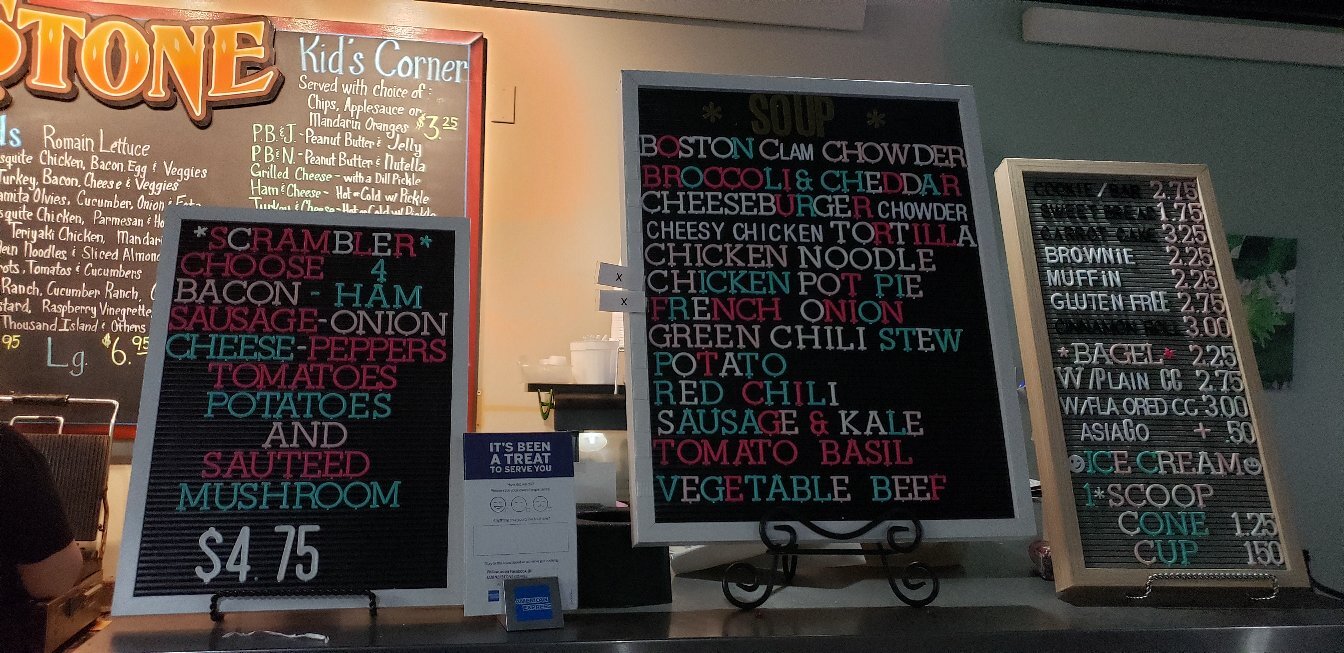 STONE
Kid's Corner
Served with choice of:
Chips, Applesauce or
Mandarin Oranges $3.25
P.B.&J. - Peanut Butter & Jelly
P.B&N - Peanut Butter & Nutella
Grilled Cheese - with a Dill Pickle
Ham & Cheese - Hot or Cold w/ Pickle
Turkey & Cheese - Hot or Cold w/ Pickle
Romain Lettuce
Chicken, Bacon, Egg & Veggies
Turkey, Bacon, Cheese & Veggies
Olvies, Cucumber, Onion
Chicken, Parmesan &
Teriyaki Chicken, Mandar
Noodles & Sliced Almond
Tomatos & Cucumbers
Ranch, Cucumber Ranch,
Raspberry Vinegrette
Thousand Island & Others
95 Lg. $6.95
*SCRAMBLER*
CHOOSE 4
BACON - HAM
SAUSAGE-ONION
CHEESE-PEPPERS
TOMATOES
POTATOES
AND
SAUTEED
MUSHROOM
$4.75
IT'S BEEN
A TREAT
TO SERVE YOU
AMERICAN
EXPRESS
* SOUP *
BOSTON CLAM CHOWDER
BROCCOLI & CHEDDAR
CHEESEBURGER CHOWDER
CHEESY CHICKEN TORTILLA
CHICKEN NOODLE
X CHICKEN POT PIE
X FRENCH ONION
GREEN CHILI STEW
POTATO
RED CHILI
SAUSAGE & KALE
TOMATO BASIL
VEGETABLE BEEF
2.75
1.75
3.25
BROWNIE 2.25
MUFFIN 2.25
GLUTEN FREE 2.75
CINNAMON ROLL 3.00
*BAGEL* 2.25
W/PLAIN CC 2.75
W/FLA ORED CC 3.00
ASIAGO + .50
ICE CREAM
1*SCOOP
CONE 1.25
CUP 150